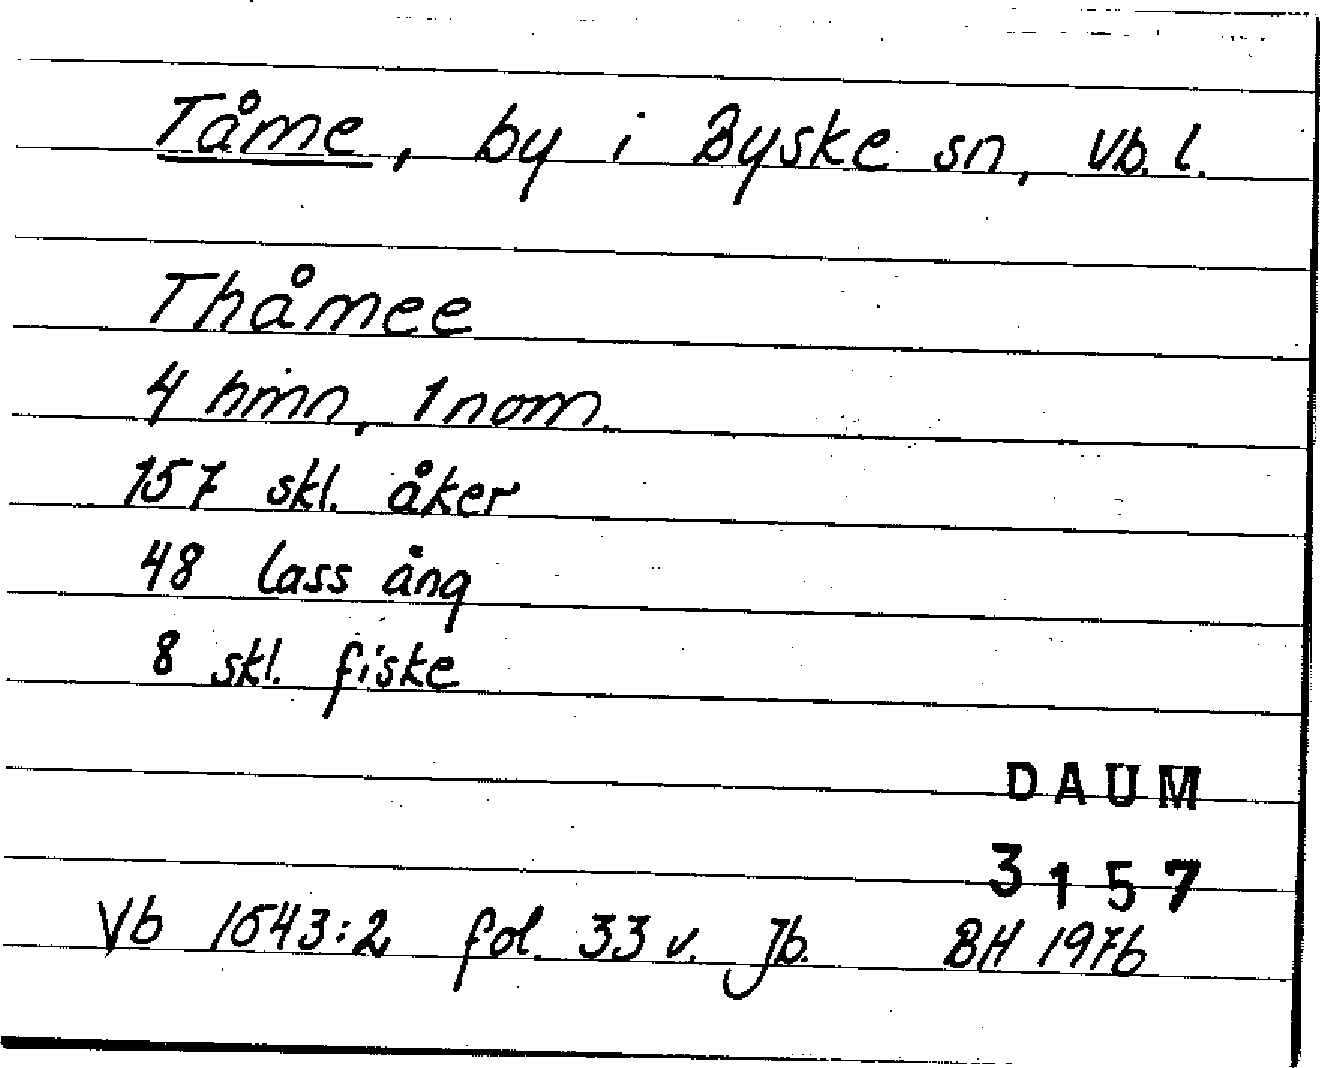 Tåme, by i Byske sn, Vb. l.
Thåmee
4 hmn, 1 nom.
157 skl. åker
48 lass äng
8 skl. fiske
DAUM
3157
Vb 1543:2 fol. 33 v. Jb. BH 1976